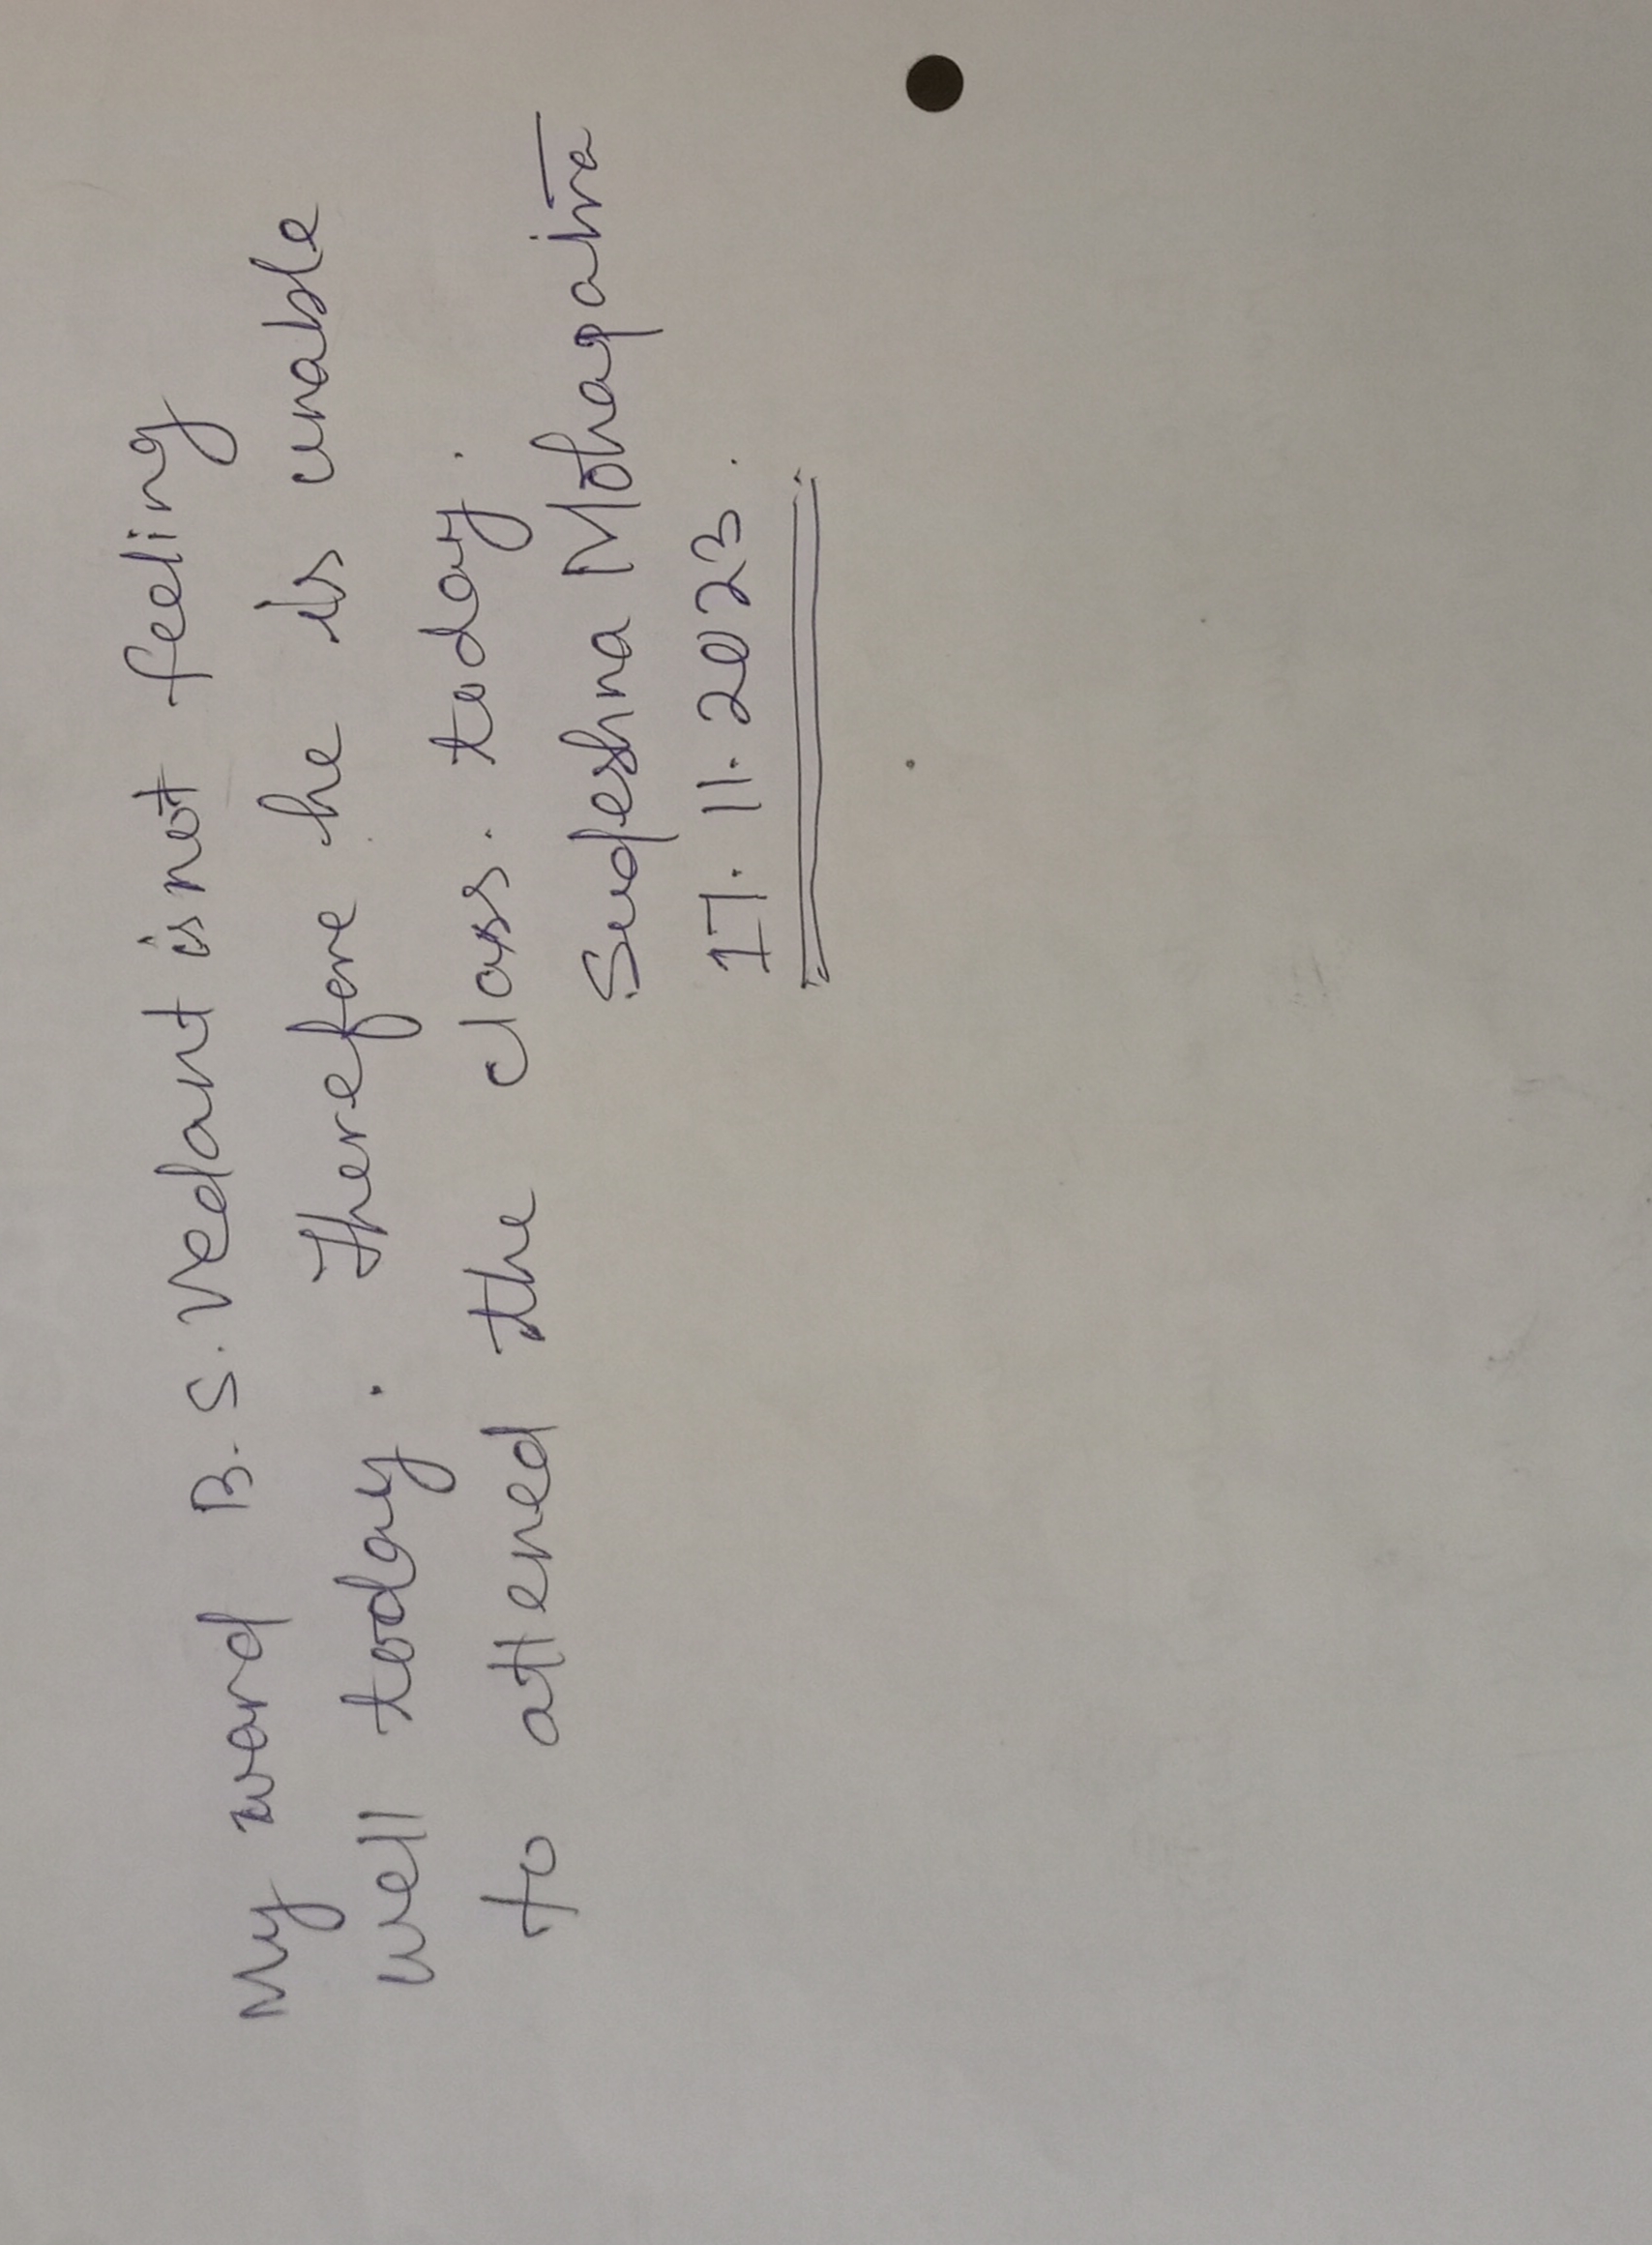 My ward B. S. Vedant is not feeling
well today. Therefore he is unable
to attend the class. today.
Sudeshna Mohapatra
17. 11. 2023.